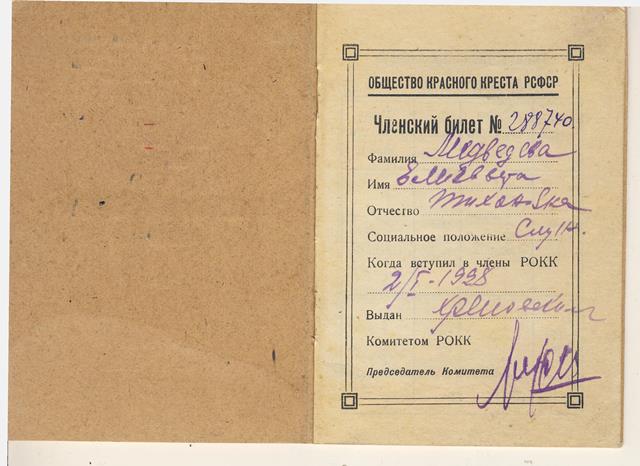 ОБЩЕСТВО КРАСНОГО КРЕСТА РСФСР
Членский билет № 288740.
Фамилия Медведева
Имя Елизавета
Отчество
Социальное положение Служ.
Когда вступил в члены РОКК
2/I-1928
Выдан
Комитетом РОКК
Председатель Комитета